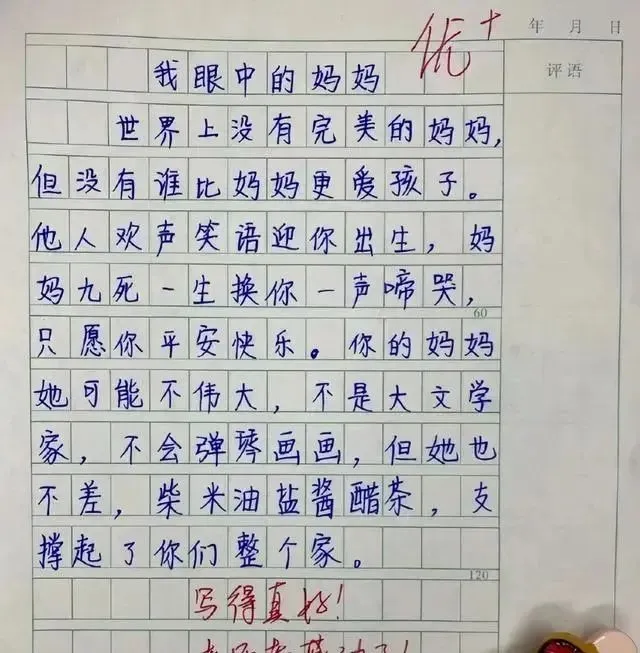 优+
年 月 日
评语
我眼中的妈妈
世界上没有完美的妈妈,
但没有谁比妈妈更爱孩子。
他人欢声笑语迎你出生,妈
妈九死一生换你一声啼哭,
60
只愿你平安快乐。你的妈妈
她可能不伟大,不是大文学
家,不会弹琴画画,但她也
不差,柴米油盐酱醋茶,支
撑起了你们整个家。
120
写得真好!